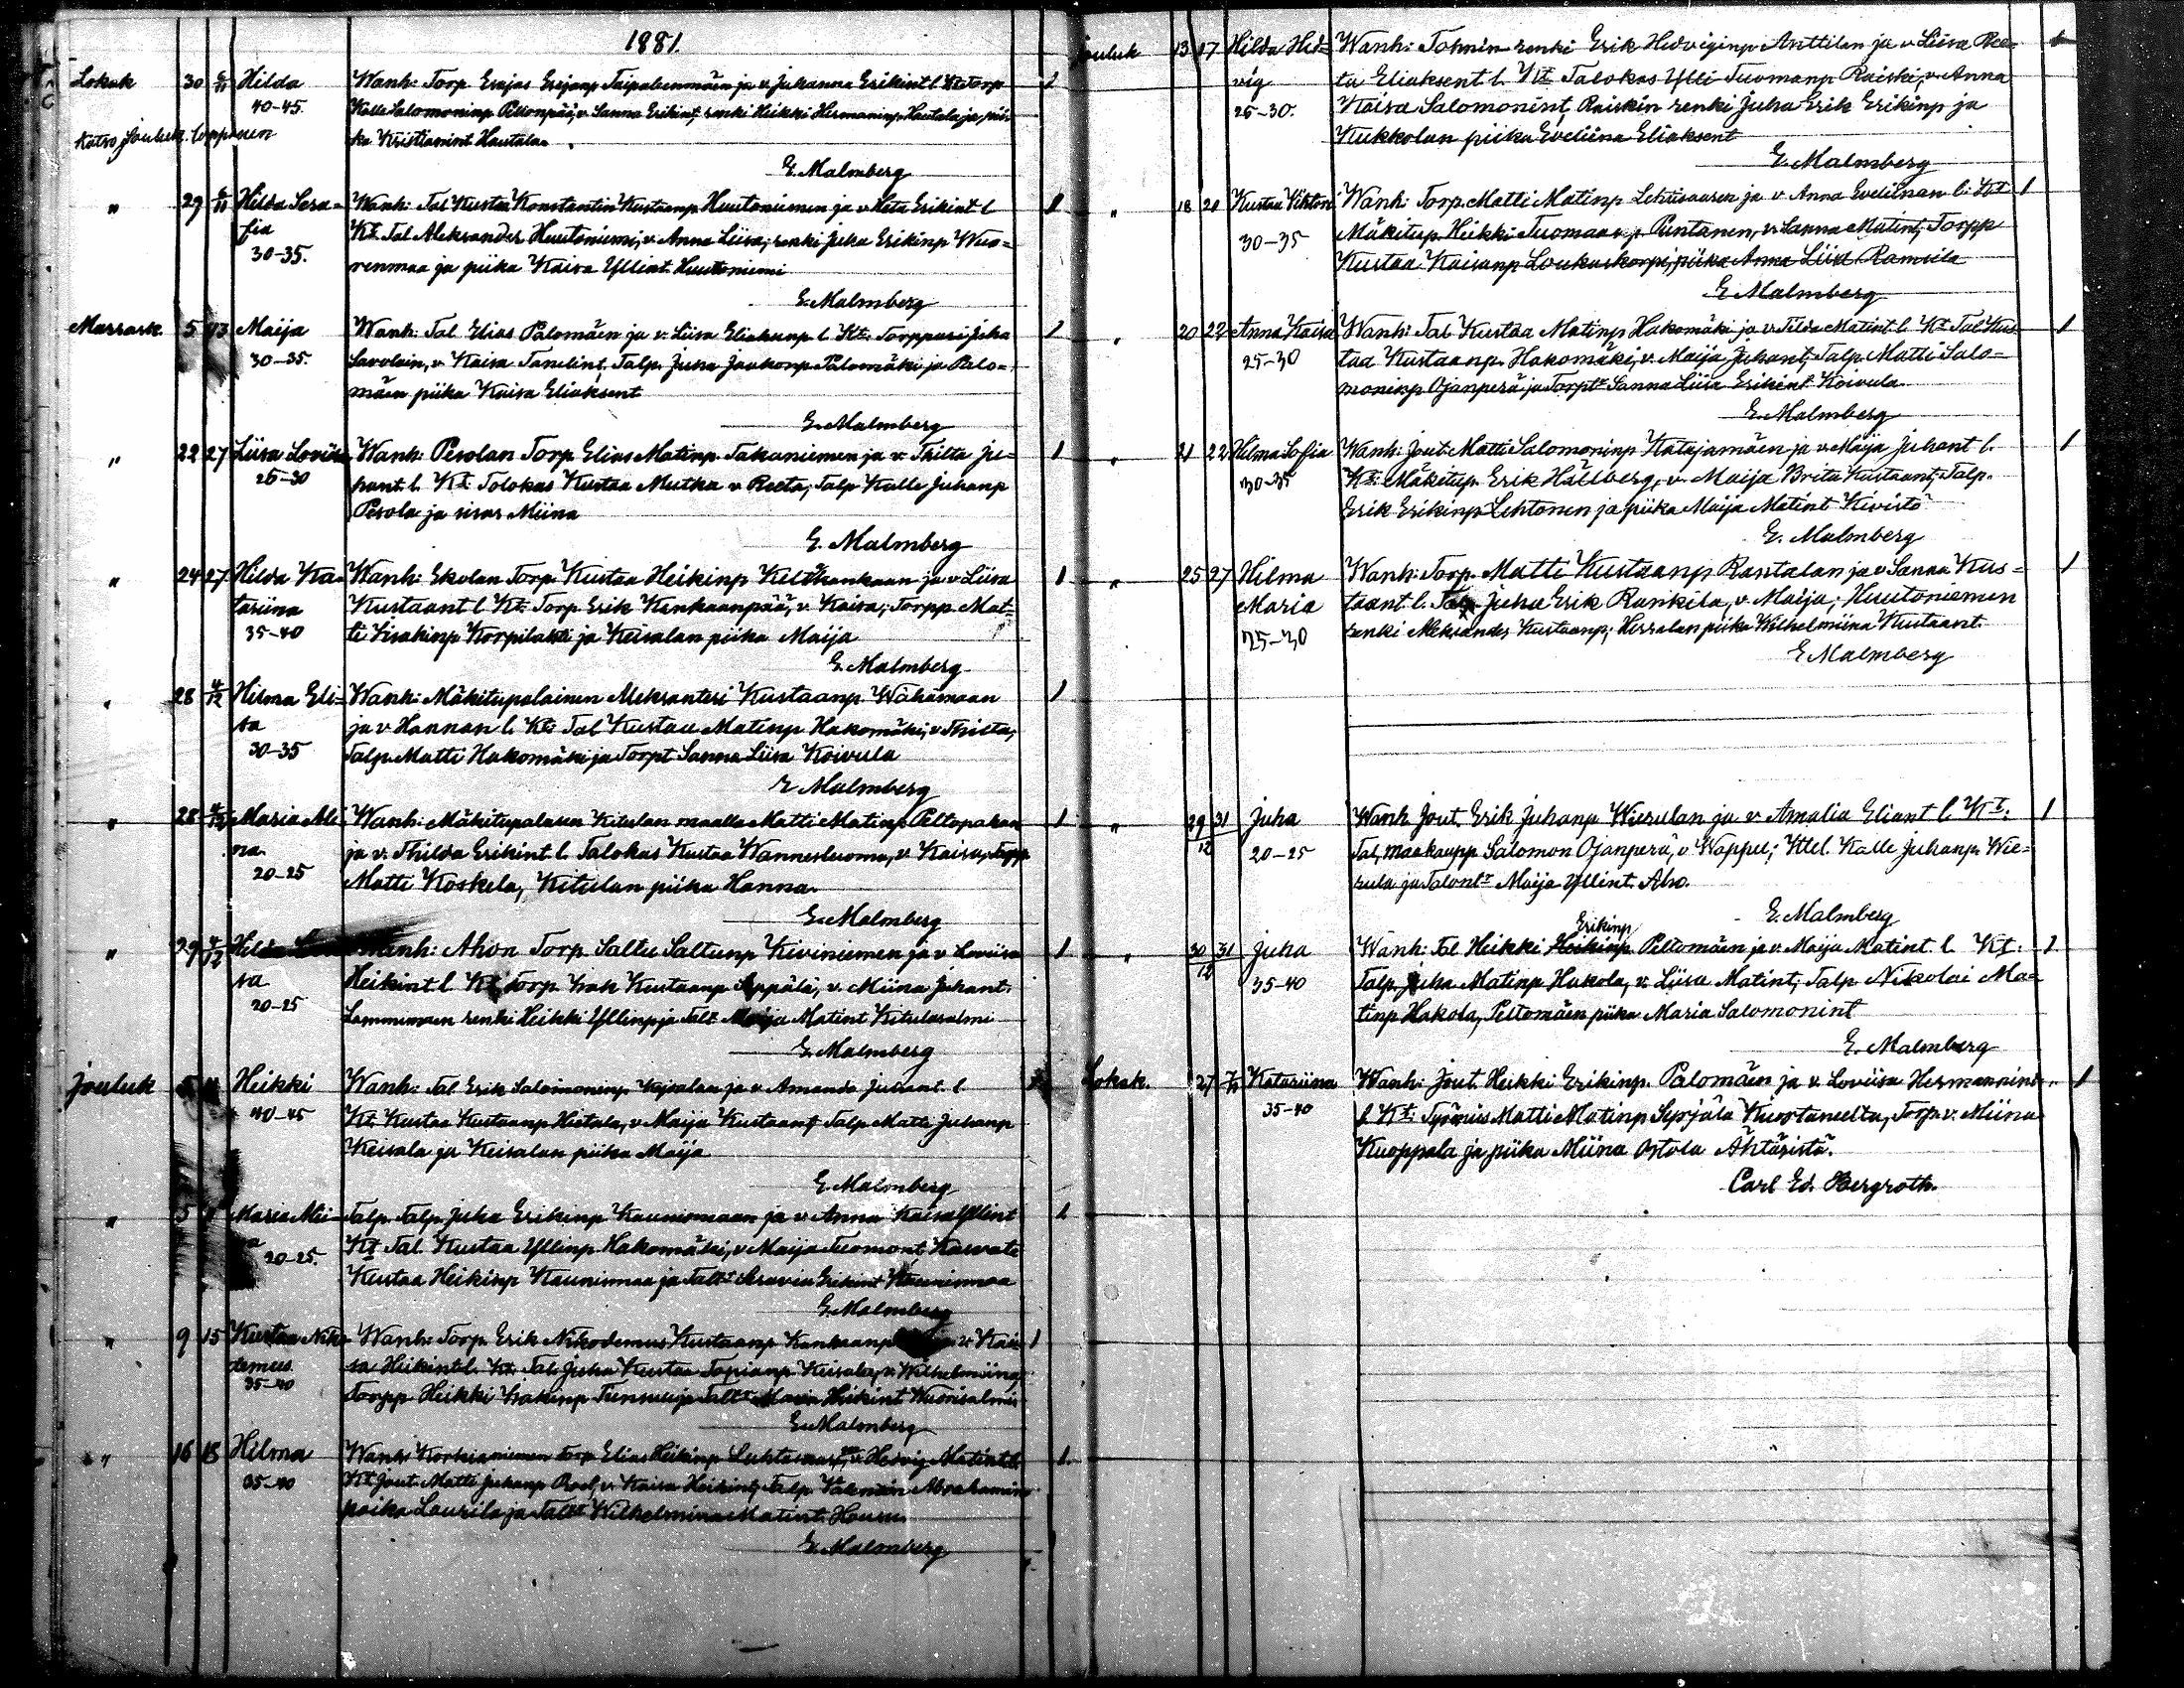 1881.
Lokak 30 6/11 Hilda Wanh: Torp Erejas Erejanp Taipalenmäen ja v. Juhanna Erikint l. Kt: Torp 1
40-45. Kalle Salomoninp Peltonpää, v. Sanna Erikint, renki Heikki Hermaninp Hautala ja pii-
Katso Jouluk. loppuun ka Kristianint Hautala.
E. Malmberg
" 29 6/11 Hilda Sera- Wanh: Tal Kustaa Konstantin Kustaanp Huutoniemen ja v. Reta Erikint l 1
fia Kt. Tal Aleksander Huutoniemi, v. Anna Liisa; renki Juha Erikinp Wuo-
30-35. renmaa ja piika Kaisa Yllint Huutoniemi
E. Malmberg
Marrask. 5 13 Maija Wanh: Tal Elias Palomäen ja v. Liisa l. Kt: Torppari Juha 1
30-35. Savolain, v. Kaisa Tanelint, Talp. Juha Jaakonp Palomäki ja Palo-
mäen piika Kaisa Eliaksent
E. Malmberg
" 22 27 Liisa Loviisa Wanh: Perolan Torp Elias Matinp Takaniemen ja v. Thilta Ju- 1
25-30 hant. l. Kt. Tolokas Kustaa Mutka v Reeta; Talp Kalle Juhanp
Perola ja sisar Miina
E. Malmberg
" 24 27 Hilda Ka- Wanh: Ekolan Torp. Kustaa Heikinp ja v. Liisa 1
tariina Kustaant l Kt: Torp Erik Kankaanpää, v. Kaisa; Torpp. Mat-
35-40 ti Iisakinp Korpilahti ja Keisalan piika Maija
E. Malmberg
" 28 4/12 Hilma Eli- Wanh: Mäkitupalainen Aleksanteri Kustaanp. Wähämaan 1
sa ja v Hannan l. Kt: Tal Kustaa Matinp Hakomäki, v Thilta;
30-35 Talp. Matti Hakomäki ja Torpt Sanna Liisa Koivula
E Malmberg
" 28 4/12 Maria Ali- Wanh: Mäkitupalaisen Kitulan maalla Matti Matinp Peltopakan 1
na ja v. Thilda Erikint l. Talokas Kustaa Wannesluoma, v Kaisa; Torpp
20-25 Matti Koskela, Kitulan piika Hanna.
E. Malmberg
" 29 4/12 Hilda Wanh: Ahon Torp Saltu Saltunp Kiviniemen ja v Loviisa 1
sa Heikint. l Kt. Torp Isak Kustaanp Seppälä, v. Miina Juhant:
20-25 renki Heikki Yllinp ja Talt Maija Matint Kitulasalmi
E. Malmberg
Jouluk 5 11 Heikki Wanh: Tal Erik Salomoninp ja v. Amanda Juhant. l 1
40-45 Kt Kustaa Kustaanp Hietala, v Maija Kustaant Talp Matti Juhanp
Keisala ja Keisalan piika Maija
E. Malmberg
" 5 11 Maria Mii- Talp Talp Juha Erikinp Kaunismaan ja v Anna Kaisa Yllint 1
na Kt Tal Kustaa Yllinp Hakomäki, v Maija Tuomont Karvata
20-25. Kustaa Heikinp Kaunismaa ja Talt Seravia Erikint Kaunismaa
E. Malmberg
" 9 15 Kustaa Niko- Wanh: Torp. Erik Nikodemus Kustaanp v. Kai- 1
demus. sa Heikint l. Kt. Tal Juha Kustaa Topianp Keisala, v. Wilhelmiina
35-40 Torpp Heikki Isakinp ja Talt Maria Heikint Wuorisalmi
E. Malmberg
" 16 18 Hilma Wanh: Korkianiemen Torp Elias Heikinp v. Hedvig Matint l. 1.
35-40 Kt Jout. Matti Juhanp v. Kaisa Heikint; Talp Abrahamin
poika Laurila ja Talt Wilhelmina Matint.
E. Malmberg
Jouluk 13 17 Hilda Hed- Wanh: Tohnin renki Erik Hedviginp Anttilan ja v Liisa Ree- 1
vig ta Eliaksent l. Kt Talokas Ylli Tuomanp Raiski, v Anna
25-30. Kaisa Salomonint, Raiskin renki Juha Erik Erikinp ja
Kukkolan piika Eveliina Eliaksent
E. Malmberg
" 18 20 Kustaa Vihtori Wanh: Torp. Matti Matinp Lehtisaaren ja v. Anna Evelinan l: Kt 1
30-35 Mäkitup. Heikki Tuomaanp Puntanen, v Sanna Matint; Torpp
Kustaa Kaisanp Loukaskorpi, piika Anna Liisa Ramsila
E Malmberg
" 20 22 Anna Kaisa Wanh: Tal Kustaa Matinp Hakomäki ja v. Tilda Matint l. Kt Tal Kus- 1
25-30 taa Kustaanp. Hakomäki, v. Maija Juhant; Talp. Matti Salo-
moninp Ojanperä ja Torpt Sanna Liisa Erikint Koivula.
E. Malmberg
" 21 22 Hilma Sofia Wanh: Jout. Matti Salomoninp Katajamäen ja v Maija Juhant l. 1
30-35 Kt: Mäkitup. Erik Hällberg, v. Maija Brita Kustaant; Talp.
Erik Erikinp Lehtonen ja piika Maija Matint Kivistö
E. Malmberg
" 25 27 Hilma Wanh: Torp. Matti Kustaanp Rantalan ja v Sanna Kus- 1
Maria taant. l. Talp Juha Erik Rankila, v. Maija; Huutoniemen
25-30 renki Aleksander Kustaanp; Herralan piika Wilhelmiina Kustaant.
E Malmberg
" 29/12 31 Juha Wanh Jout. Erik Juhanp Wierulan ja v Amalia Eliant l Kt: 1
20-25 Tal, maakaupp Salomon Ojanperä, v Wappu; Ktel. Kalle Juhanp Wie-
rula ja Talont Maija Yllint. Aho.
E. Malmberg
Erikinp
" 30/12 31 Juha Wanh: Tal Heikki Heikinp Peltomäen ja v. Maija Matint. l Kt: 1
35-40 Talp. Juha Matinp Hakola, v. Liisa Matint; Talp Nikolai Ma-
tinp Hakola, Peltomäen piika Maria Salomonint
E. Malmberg
Lokak. 27 7/11 Katariina Wanh: Jout. Heikki Erikinp. Palomäen ja v. Loviisa Hermannint. 1
35-40 l Kt: Matti Matinp Syrjälä Kuortaneelta, Torp. v. Miina
Kuoppala ja piika Miina Ostola Ähtäristä.
Carl Ed. Bergroth.